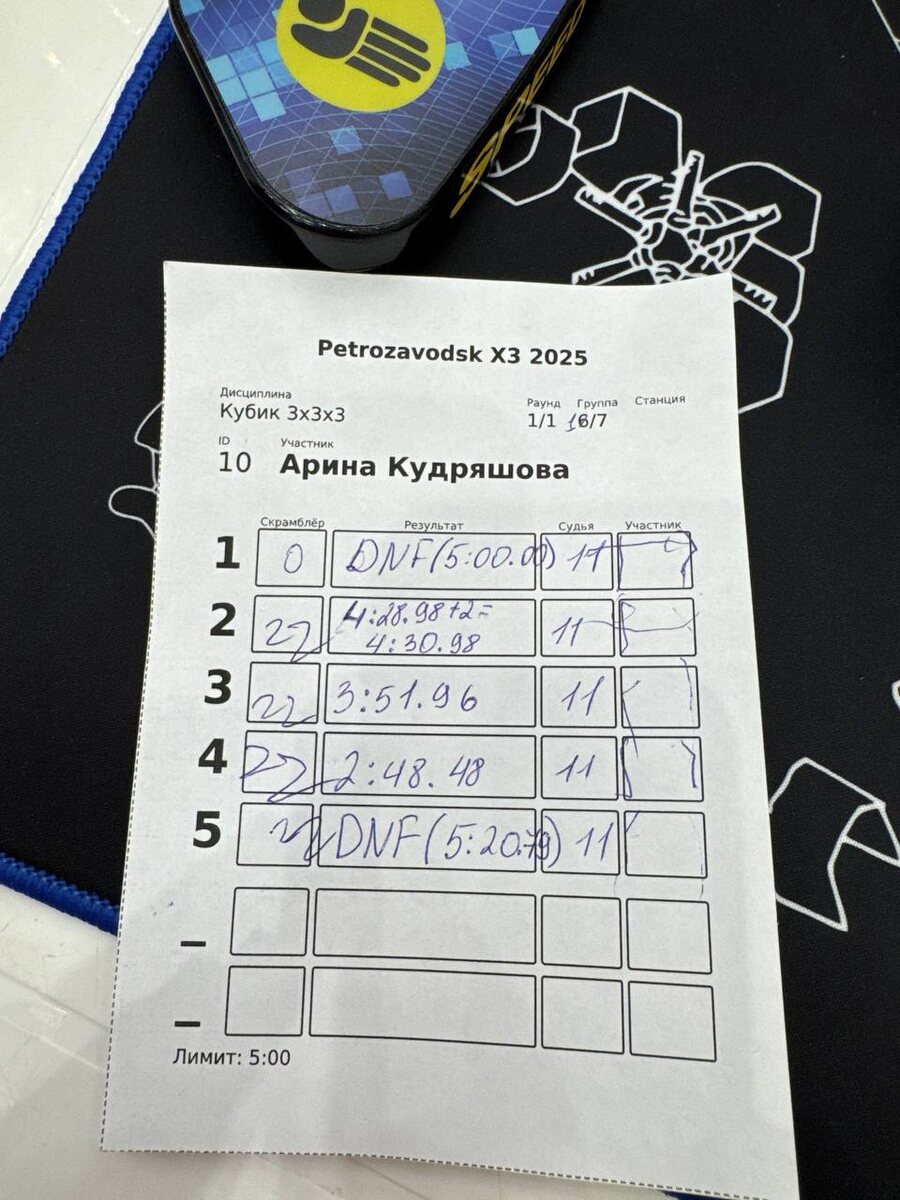 Speed
Petrozavodsk X3 2025
Дисциплина Раунд Группа Станция
Кубик 3x3x3 1/1 6/7
ID Участник
10 Арина Кудряшова
Скрамблёр Результат Судья Участник
1 0 DNF(5:00.00) 11
2 22 4:28.98+2=
4:30.98 11
3 22 3:51.96 11
4 22 2:48.48 11
5 22 DNF(5:20.79) 11
_
_
Лимит: 5:00